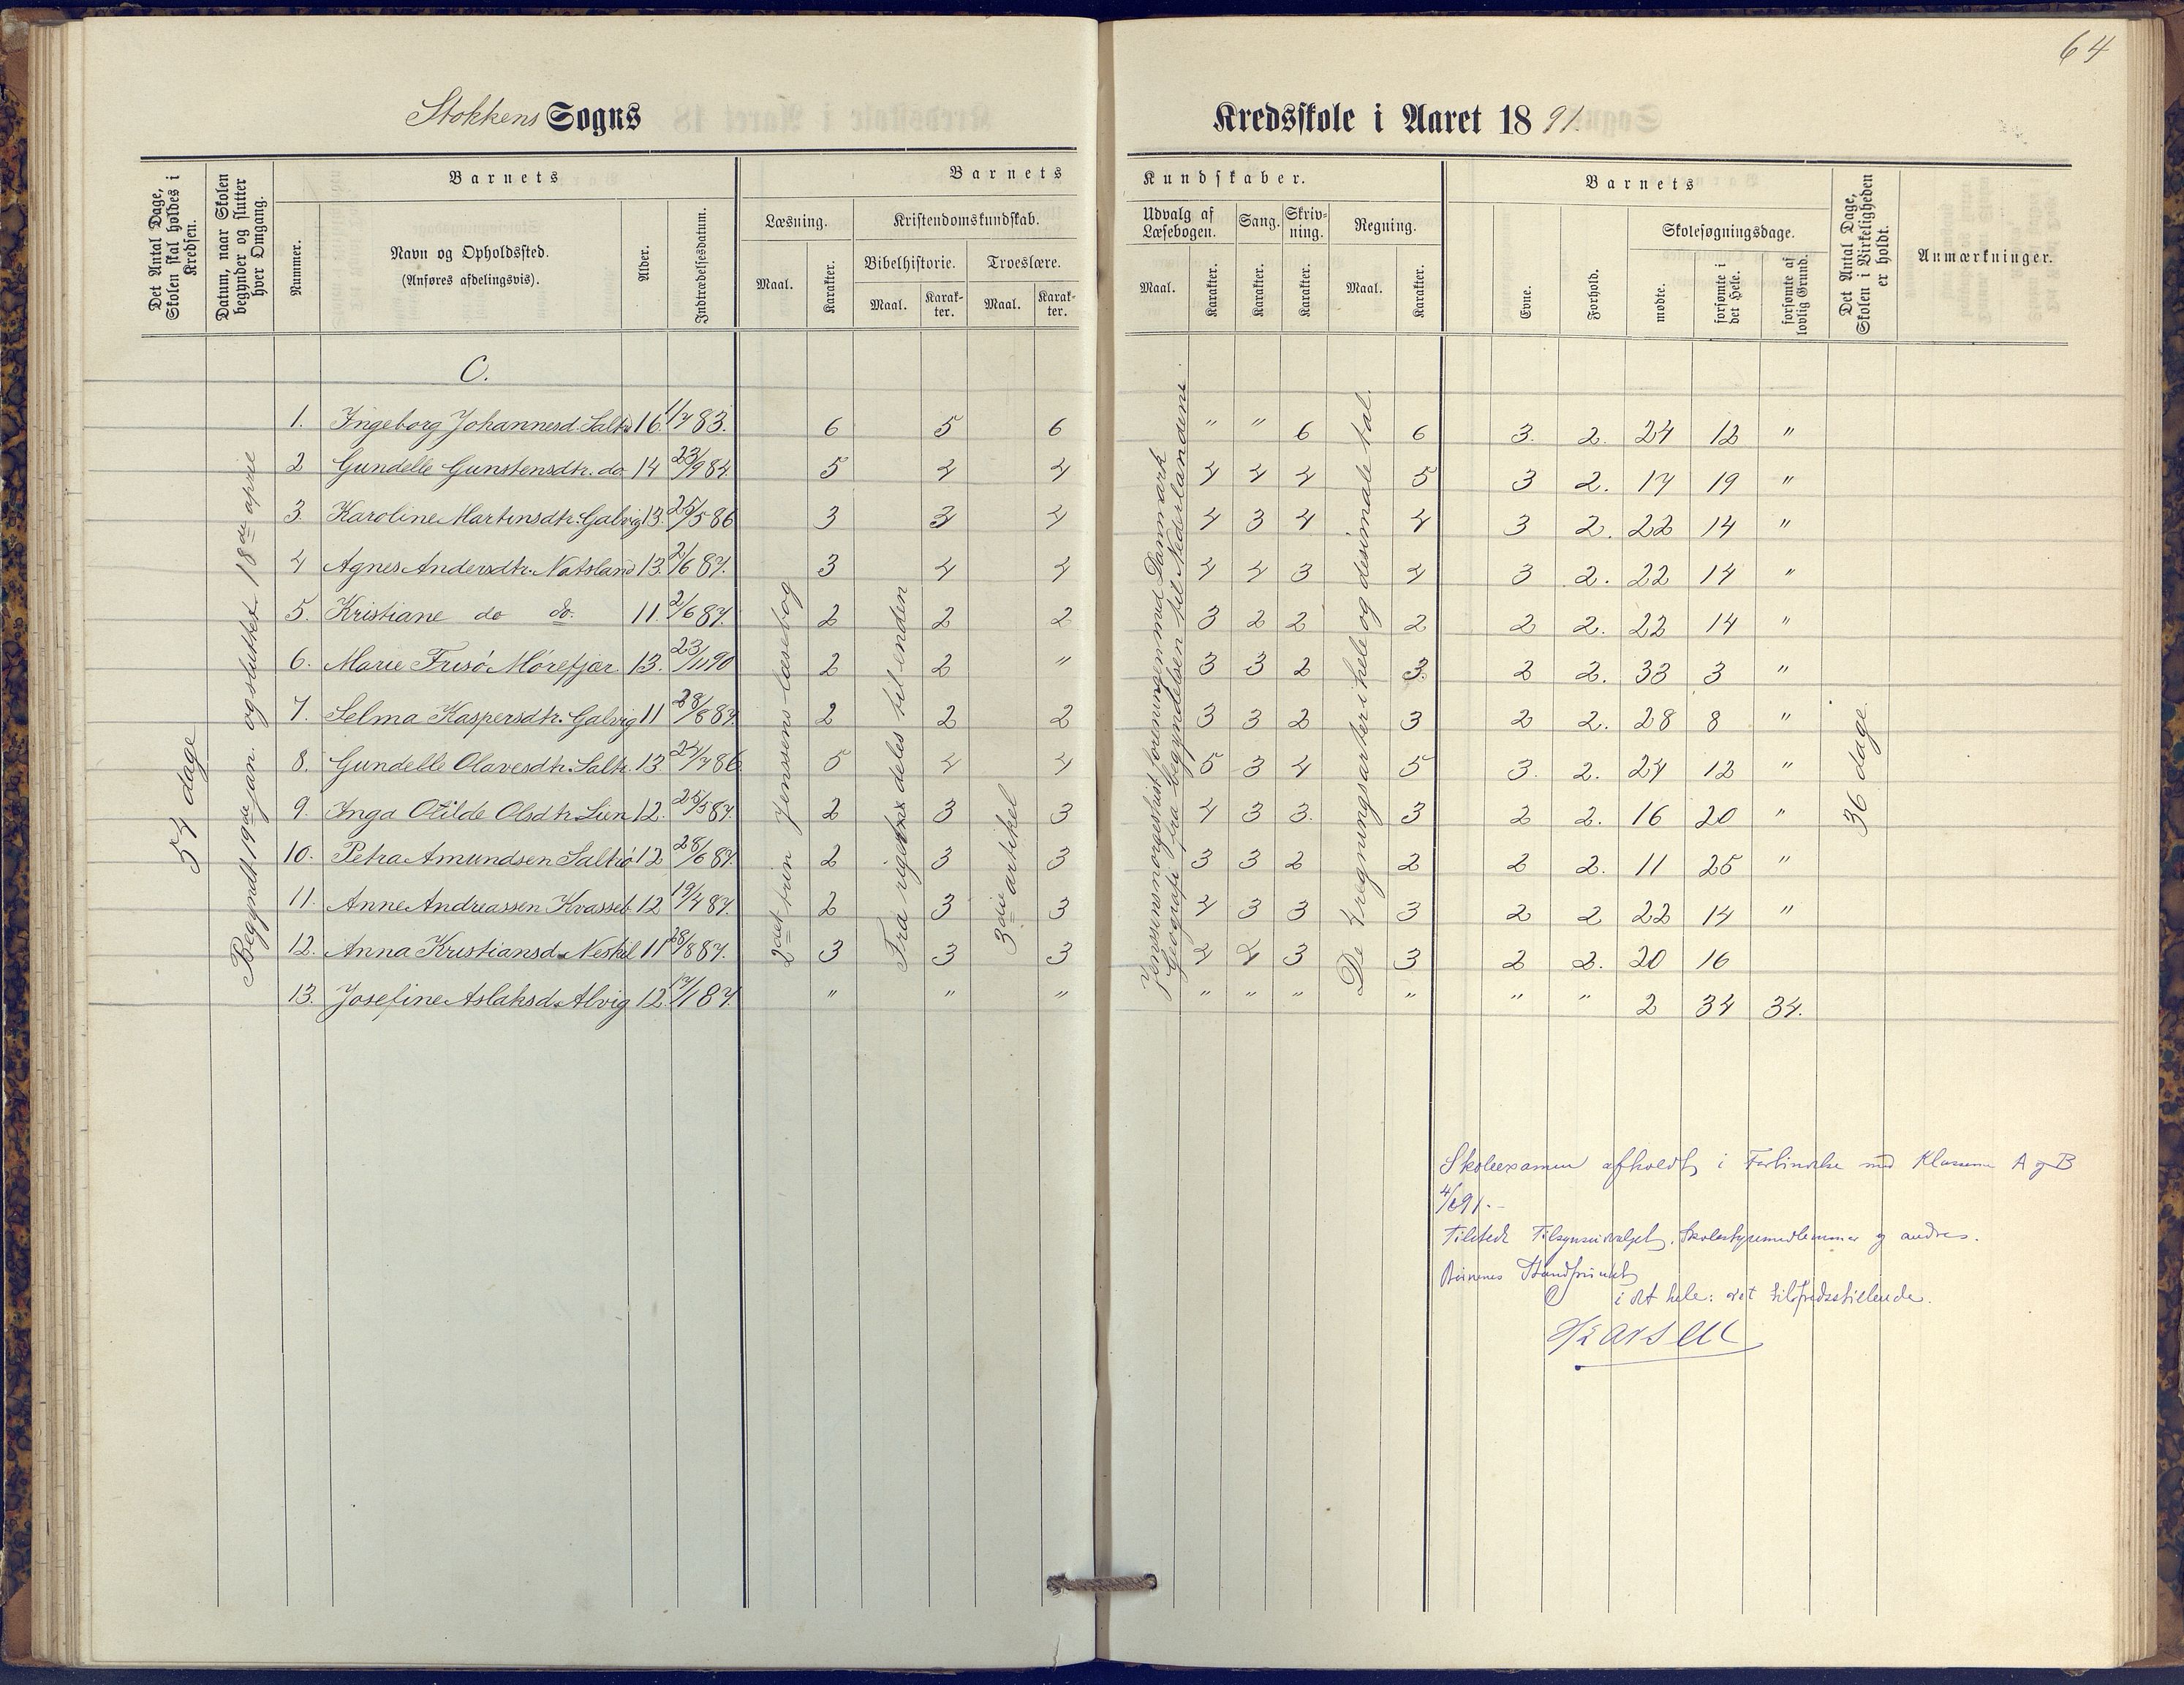 64
Stokkens Sogns
Kredsskole i Aaret 1891.
Det Antal Dage, Skolen skal holdes i Kredsen.
Datum, naar Skolen begynder og slutter hver Omgang.
Barnets
Nummer.
Navn og Opholdssted.
(Anføres afdelingsvis).
Alder.
Indtrædelsesdatum.
Barnets
Læsning.
Maal.
Karakter.
Kristendomskundskab.
Bibelhistorie.
Maal.
Karak-ter.
Troeslære.
Maal.
Karak-ter.
Kundskaber.
Udvalg af Læsebogen.
Maal.
Karakter.
Sang.
Karakter.
Skriv-ning.
Karakter.
Regning.
Maal.
Karakter.
Barnets
Evne.
Forhold.
Skolesøgningsdage.
mødte.
forsømte i det Hele.
forsømte af lovlig Grund.
Det Antal Dage, Skolen i Virkeligheden er holdt.
Anmærkninger.
C.
54 dage
Begyndt 19de jan. og sluttet 18de april
2det trin Jensens læsebog
Fra rigets deles til enden
3die artikel
Jenssens norges hist foreningen med Danmark
Geografi fra begyndelsen til Nederlandene.
De 4 regningsarter i hele og desimale tal.
36 dage.
1. Ingeborg Johannesd. Saltrø 16 1/4 83. 6 5 6 " " 6 6 3. 2. 24 12 "
2 Gundelle Gunstensdtr. do 14 23/9 84 5 4 4 4 4 4 5 3 2. 17 19 "
3. Karoline Martinsdtr. Galvig 13. 25/5 86 3 3 4 4 3 4 4 3 2. 22 14 "
4 Agnes Andersdtr. Natsland 13. 2/6 87. 3 4 4 4 4 3 4 3 2. 22 14 "
5. Kristiane do do. 11. 2/6 87. 2 2 2 3 2 2 2 2 2. 22 14 "
6. Marie Frisø Mørefjær 13. 23/11 90 2 2 " 3 3 2 3. 2 2. 33 3 "
7. Selma Kaspersdtr. Galvig 11 28/6 87. 2 2 2 3 3 2 3 2 2. 28 8 "
8. Gundelle Olavesdtr. Saltr. 13 24/4 86 5 4 4 5 3 4 5 3. 2. 24 12 "
9. Inga Otilde Olsdtr Lien 12. 25/5 87. 2 3 3 4 3 3. 3 2 2. 16 20 "
10. Petra Amundsen Saltrø 12 28/6 87. 2 3 3 3 3 2 2 2 2. 11 25 "
11. Anne Andreassen Kvasset. 12 19/4 87. 2 3 3 4 3 3 3 2 2 22 14 "
12. Anna Kristiansd. Neskil 11 28/8 87. 3 3 3 4 4 3 3 2 2. 20 16
13. Josefine Aslaksd. Alvig 12. 12/1 87. " " " " " " " " " 2 34 34.
Skoleexamen afholdt i Forbindelse med Klasserne A og B
4/6 91.-
Tilstede Tilsynsudvalget, Skolestyremedlemmer og andres.
Børnenes Standpunkt
i det hele: ret tilfredsstillende.